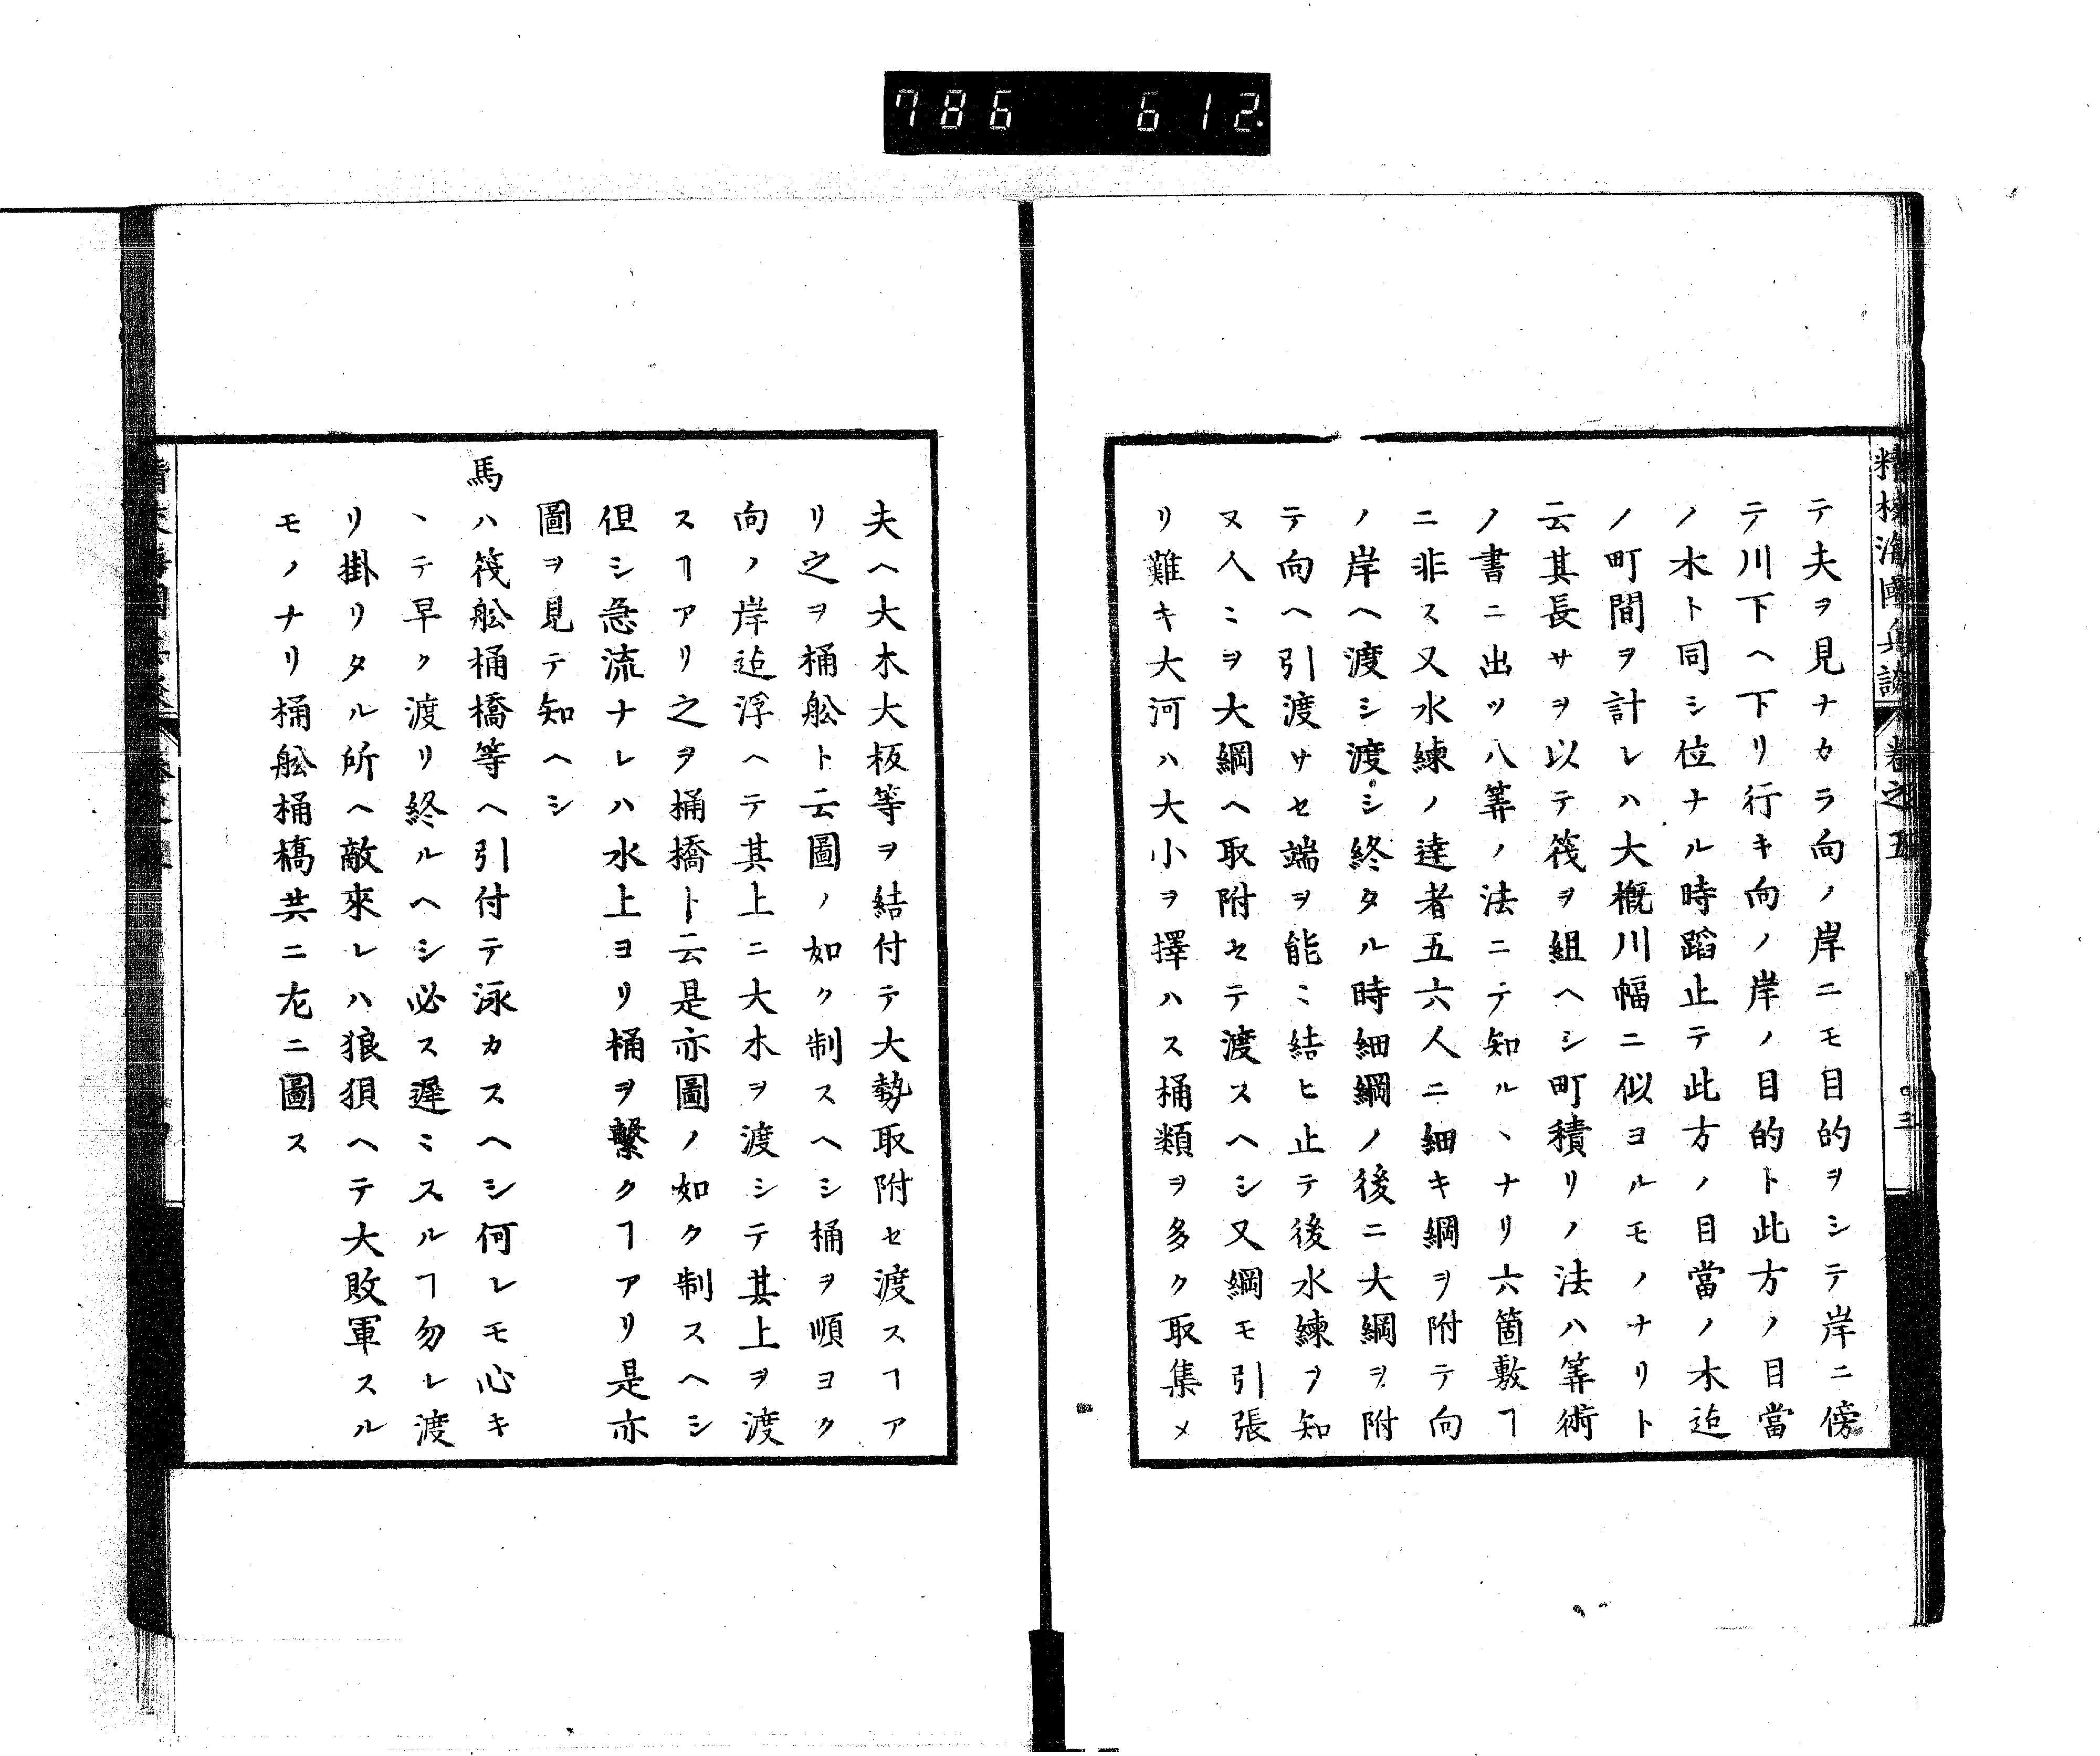 786 612
精校海國兵談 卷之五
テ夫ヲ見ナカラ向ノ岸ニモ目的ヲシテ岸ニ傍
テ川下ヘ下リ行キ向ノ岸ノ目的ト此方ノ目當
ノ木ト同シ位ナル時蹈止テ此方ノ目當ノ木迠
ノ町間ヲ計レハ大概川幅ニ似ヨルモノナリト
云其長サヲ以テ筏ヲ組ヘシ町積リノ法ハ筭術
ノ書ニ出ツ八筭ノ法ニテ知ルヽナリ六箇敷ヿ
ニ非ス又水練ノ達者五六人ニ細キ綱ヲ附テ向
ノ岸ヘ渡シ渡シ終タル時細綱ノ後ニ大綱ヲ附
テ向ヘ引渡サセ端ヲ能〻結ヒ止テ後水練ヲ知
ヌ人〻ヲ大綱ヘ取附セテ渡スヘシ又綱モ引張
リ難キ大河ハ大小ヲ擇ハス桶類ヲ多ク取集メ
夫ヘ大木大板等ヲ結付テ大勢取附セ渡スヿア
リ之ヲ桶舩ト云圖ノ如ク制スヘシ桶ヲ順ヨク
向ノ岸迠浮ヘテ其上ニ大木ヲ渡シテ其上ヲ渡
スヿアリ之ヲ桶橋ト云是亦圖ノ如ク制スヘシ
但シ急流ナレハ水上ヨリ桶ヲ繫クヿアリ是亦
圖ヲ見テ知ヘシ
馬ハ筏舩桶橋等ヘ引付テ泳カスヘシ何レモ心キ
ヽテ早ク渡リ終ルヘシ必ス遲〻スルヿ勿レ渡
リ掛リタル所ヘ敵來レハ狼狽ヘテ大敗軍スル
モノナリ桶舩桶橋共ニ左ニ圖ス